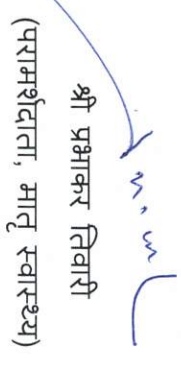 श्री प्रभाकर तिवारी
(परामर्शदाता, मातृ स्वास्थ्य)